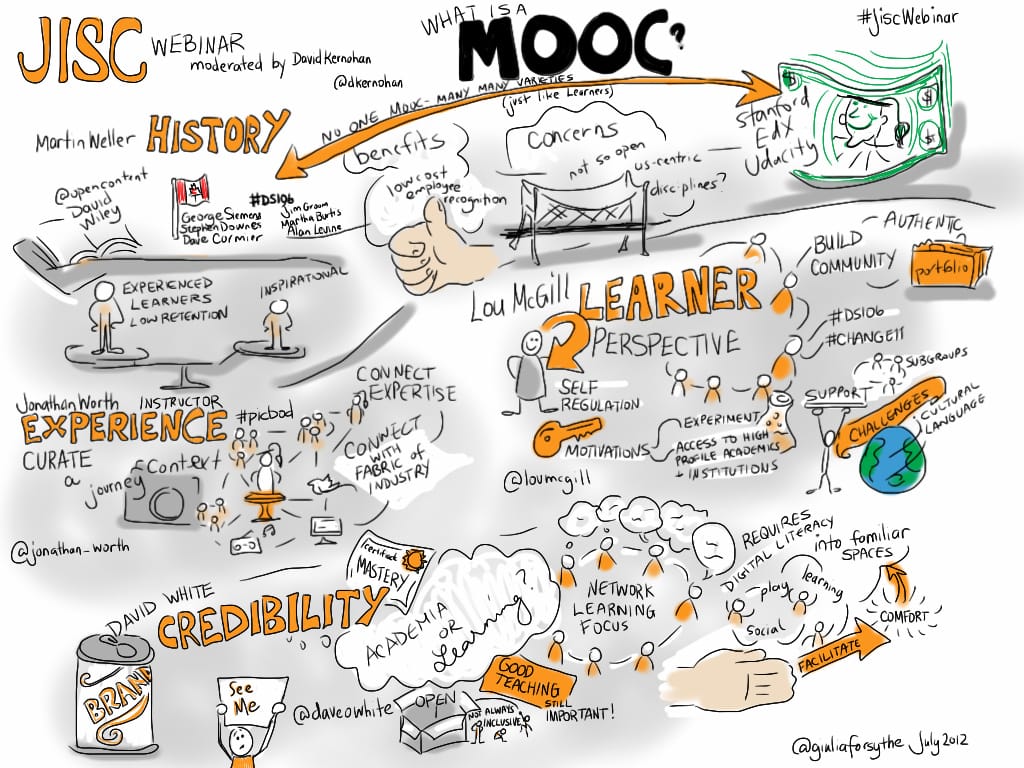 JISC WEBINAR
moderated by David Kernohan
@dkernohan
WHAT IS A
MOOC?
#jiscWebinar
NO ONE MOOC - MANY MANY VARIETIES
(just like Learners)
Martin Weller HISTORY
@opencontent
David
Wiley
#DS106
George Siemens
Stephen Downes
Dave Cormier
Jim Groom
Martha Burtis
Alan Levine
benefits
low cost
employee
recognition
concerns
not so open
us-centric
disciplines?
Stanford
EdX
Udacity
$
$
$
EXPERIENCED
LEARNERS
LOW RETENTION
INSPIRATIONAL
Lou McGill LEARNER
PERSPECTIVE
BUILD
COMMUNITY
AUTHENTIC
portfolio
#DS106
#CHANGE11
SELF
REGULATION
MOTIVATIONS
EXPERIMENT
ACCESS TO HIGH
PROFILE ACADEMICS
+ INSTITUTIONS
SUPPORT
SUBGROUPS
CHALLENGES
CULTURAL
LANGUAGE
@loumcgill
Jonathan Worth INSTRUCTOR
EXPERIENCE
#picbod
CURATE
a
journey
Context
CONNECT
EXPERTISE
CONNECT
WITH
FABRIC OF
INDUSTRY
@jonathan_worth
DAVID WHITE
CREDIBILITY
MASTERY
ACADEMIA
OR
Learning?
NETWORK
LEARNING
FOCUS
REQUIRES
DIGITAL LITERACY
play
learning
social
into familiar
SPACES
COMFORT
FACILITATE
BRAND
See
Me
@daveowhite
OPEN
NOT ALWAYS
INCLUSIVE
GOOD
TEACHING
STILL
IMPORTANT!
@giuliaforsythe July 2012